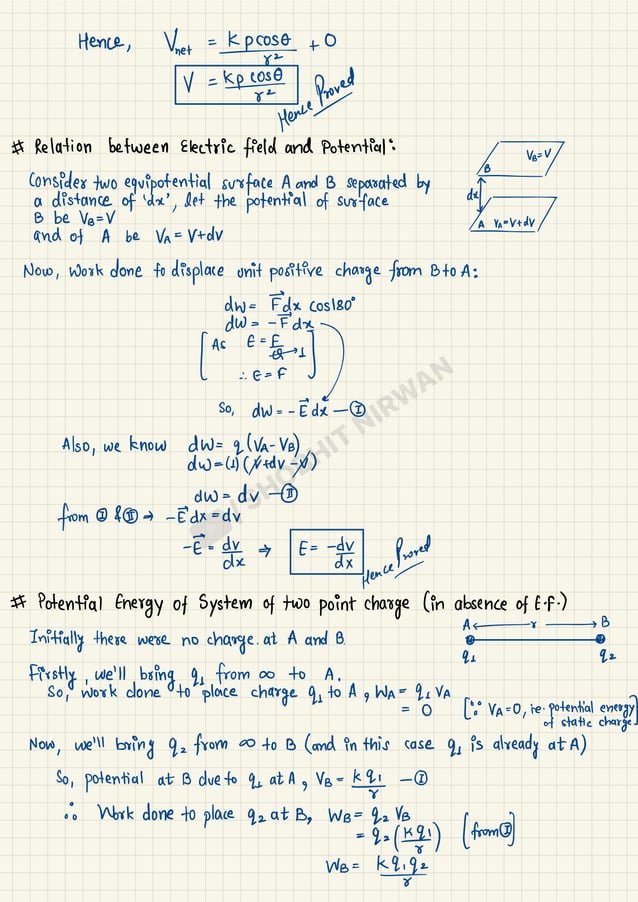 Hence, Vnet = Kpcosθ/r² + 0
V = Kpcosθ/r²
Hence Proved
# Relation between Electric field and Potential:
Consider two equipotential surface A and B separated by
a distance of 'dx', let the potential of surface
B be VB=V
and of A be VA = V+dV
B VB=V
dx
A VA=V+dV
Now, Work done to displace unit positive charge from B to A:
dw = F⃗dx cos180°
dw = -F⃗dx
[As E = F/q→1
∴ E = F]
So, dw = -E⃗dx —Ⓘ
Also, we know dw = q(VA-VB)
dw = (1)(V+dV-V)
dw = dv —Ⓘⓘ
from Ⓘ & Ⓘⓘ → -E⃗dx = dv
-E⃗ = dv/dx ⇒ E = -dv/dx
Hence Proved
SHOBHIT NIRWAN
# Potential Energy of System of two point charge (in absence of E.f.)
Initially there were no charge at A and B.
A ← r → B
q1 q2
Firstly, we'll bring q1 from ∞ to A.
So, work done to place charge q1 to A, WA = q1 VA
= 0 [∵ VA=0, i.e. potential energy
of static charge]
Now, we'll bring q2 from ∞ to B (and in this case q1 is already at A)
So, potential at B due to q1 at A, VB = kq1/r —Ⓘ
∴ Work done to place q2 at B, WB = q2 VB
= q2(Kq1/r) [from Ⓘ]
WB = Kq1q2/r